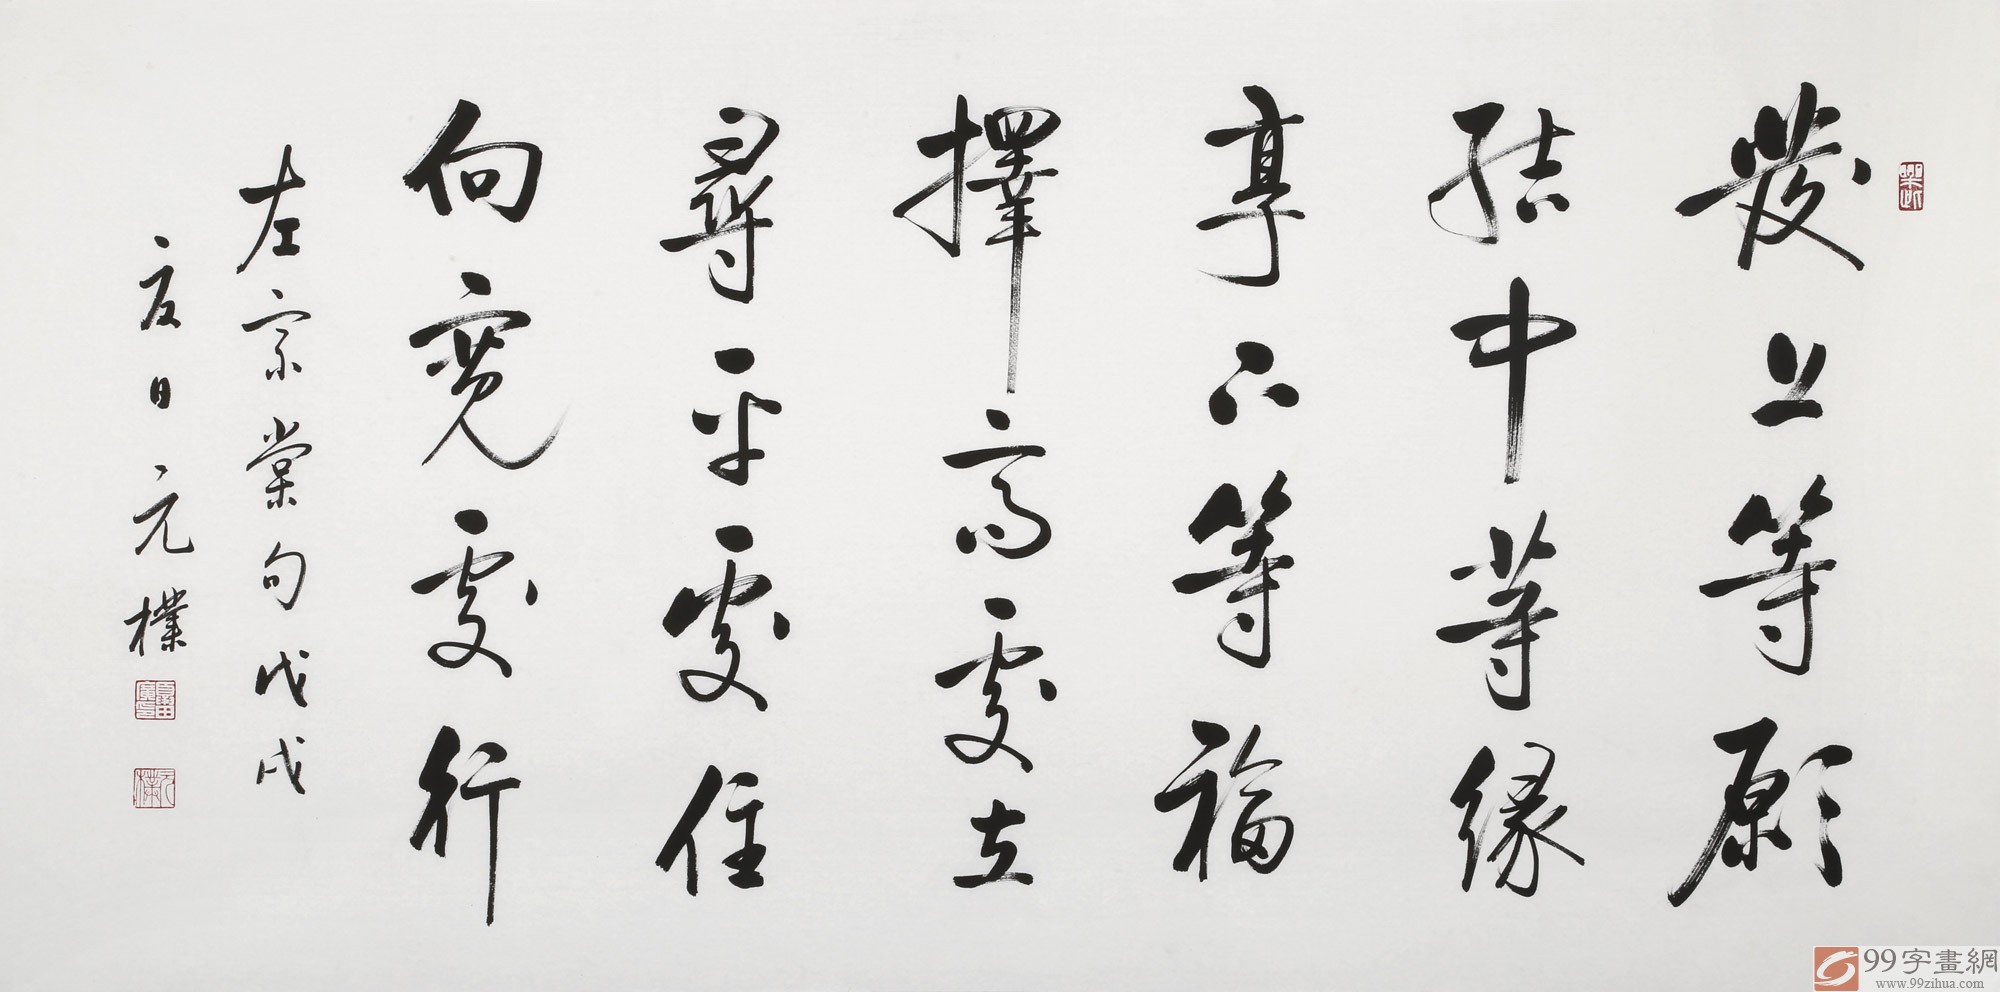 發上等願
結中等緣
享下等福
擇高處立
尋平處住
向寬處行
左宗棠句戊戌
夏日元樸
99字畫網
www.99zihua.com